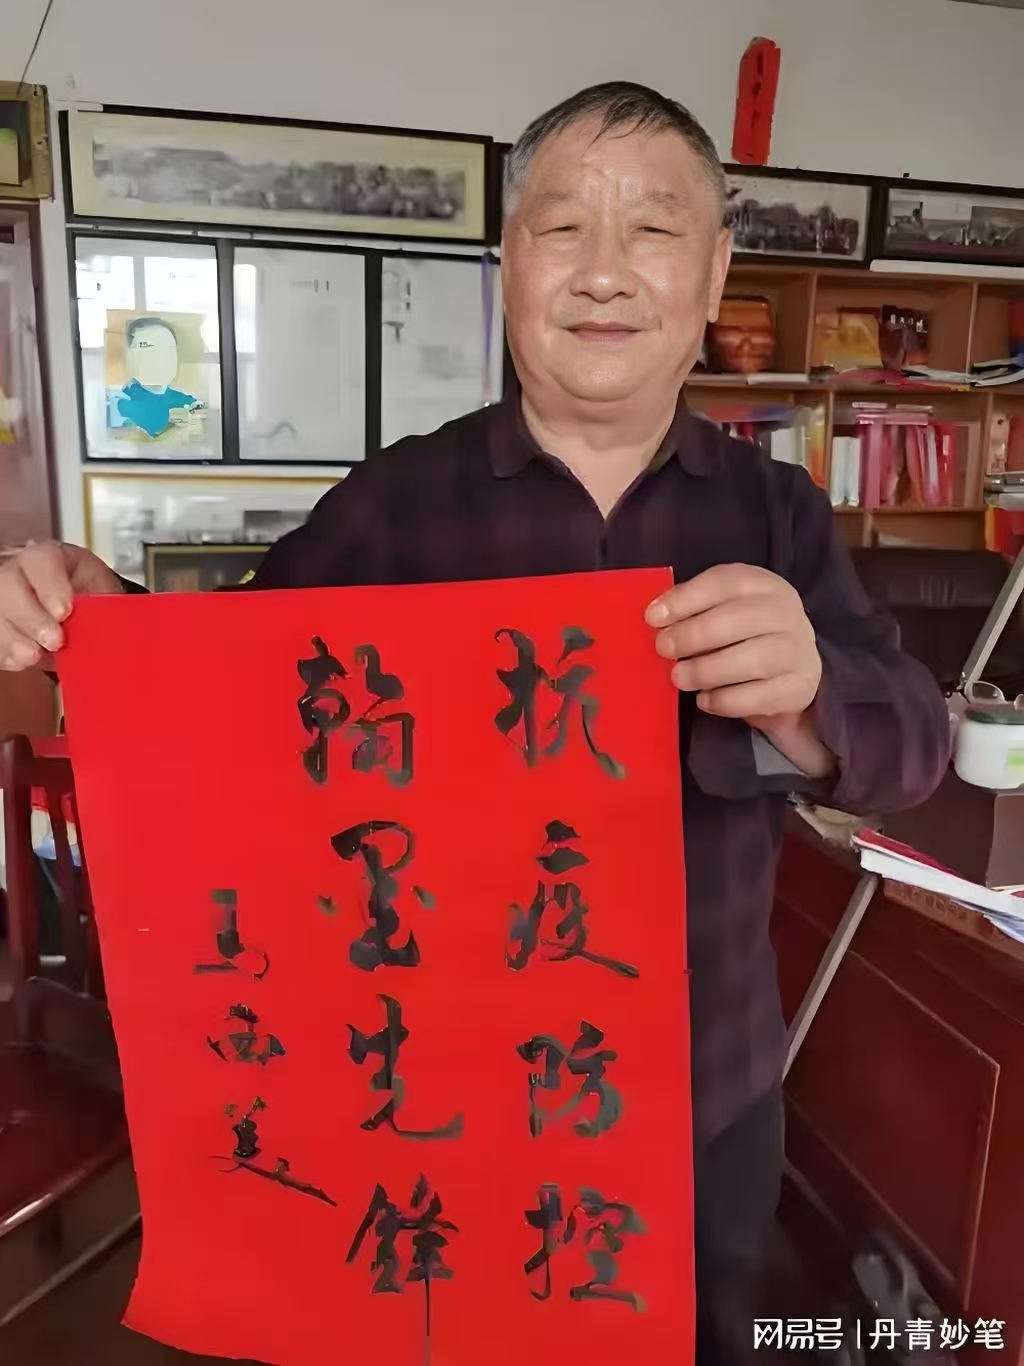 抗疫防控
翰墨先锋
马西美
网易号 | 丹青妙笔